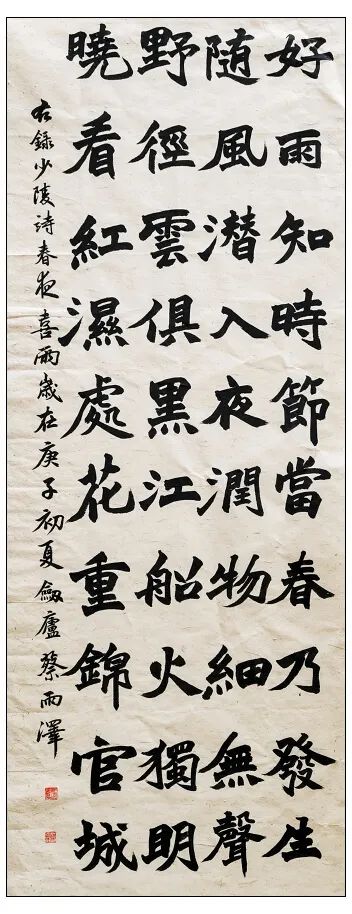 好雨知時節當春乃發生
随風潜入夜潤物細無聲
野徑雲俱黑江船火獨明
曉看紅濕處花重錦官城
右錄少陵詩春夜喜雨歲在庚子初夏劍廬蔡雨澤